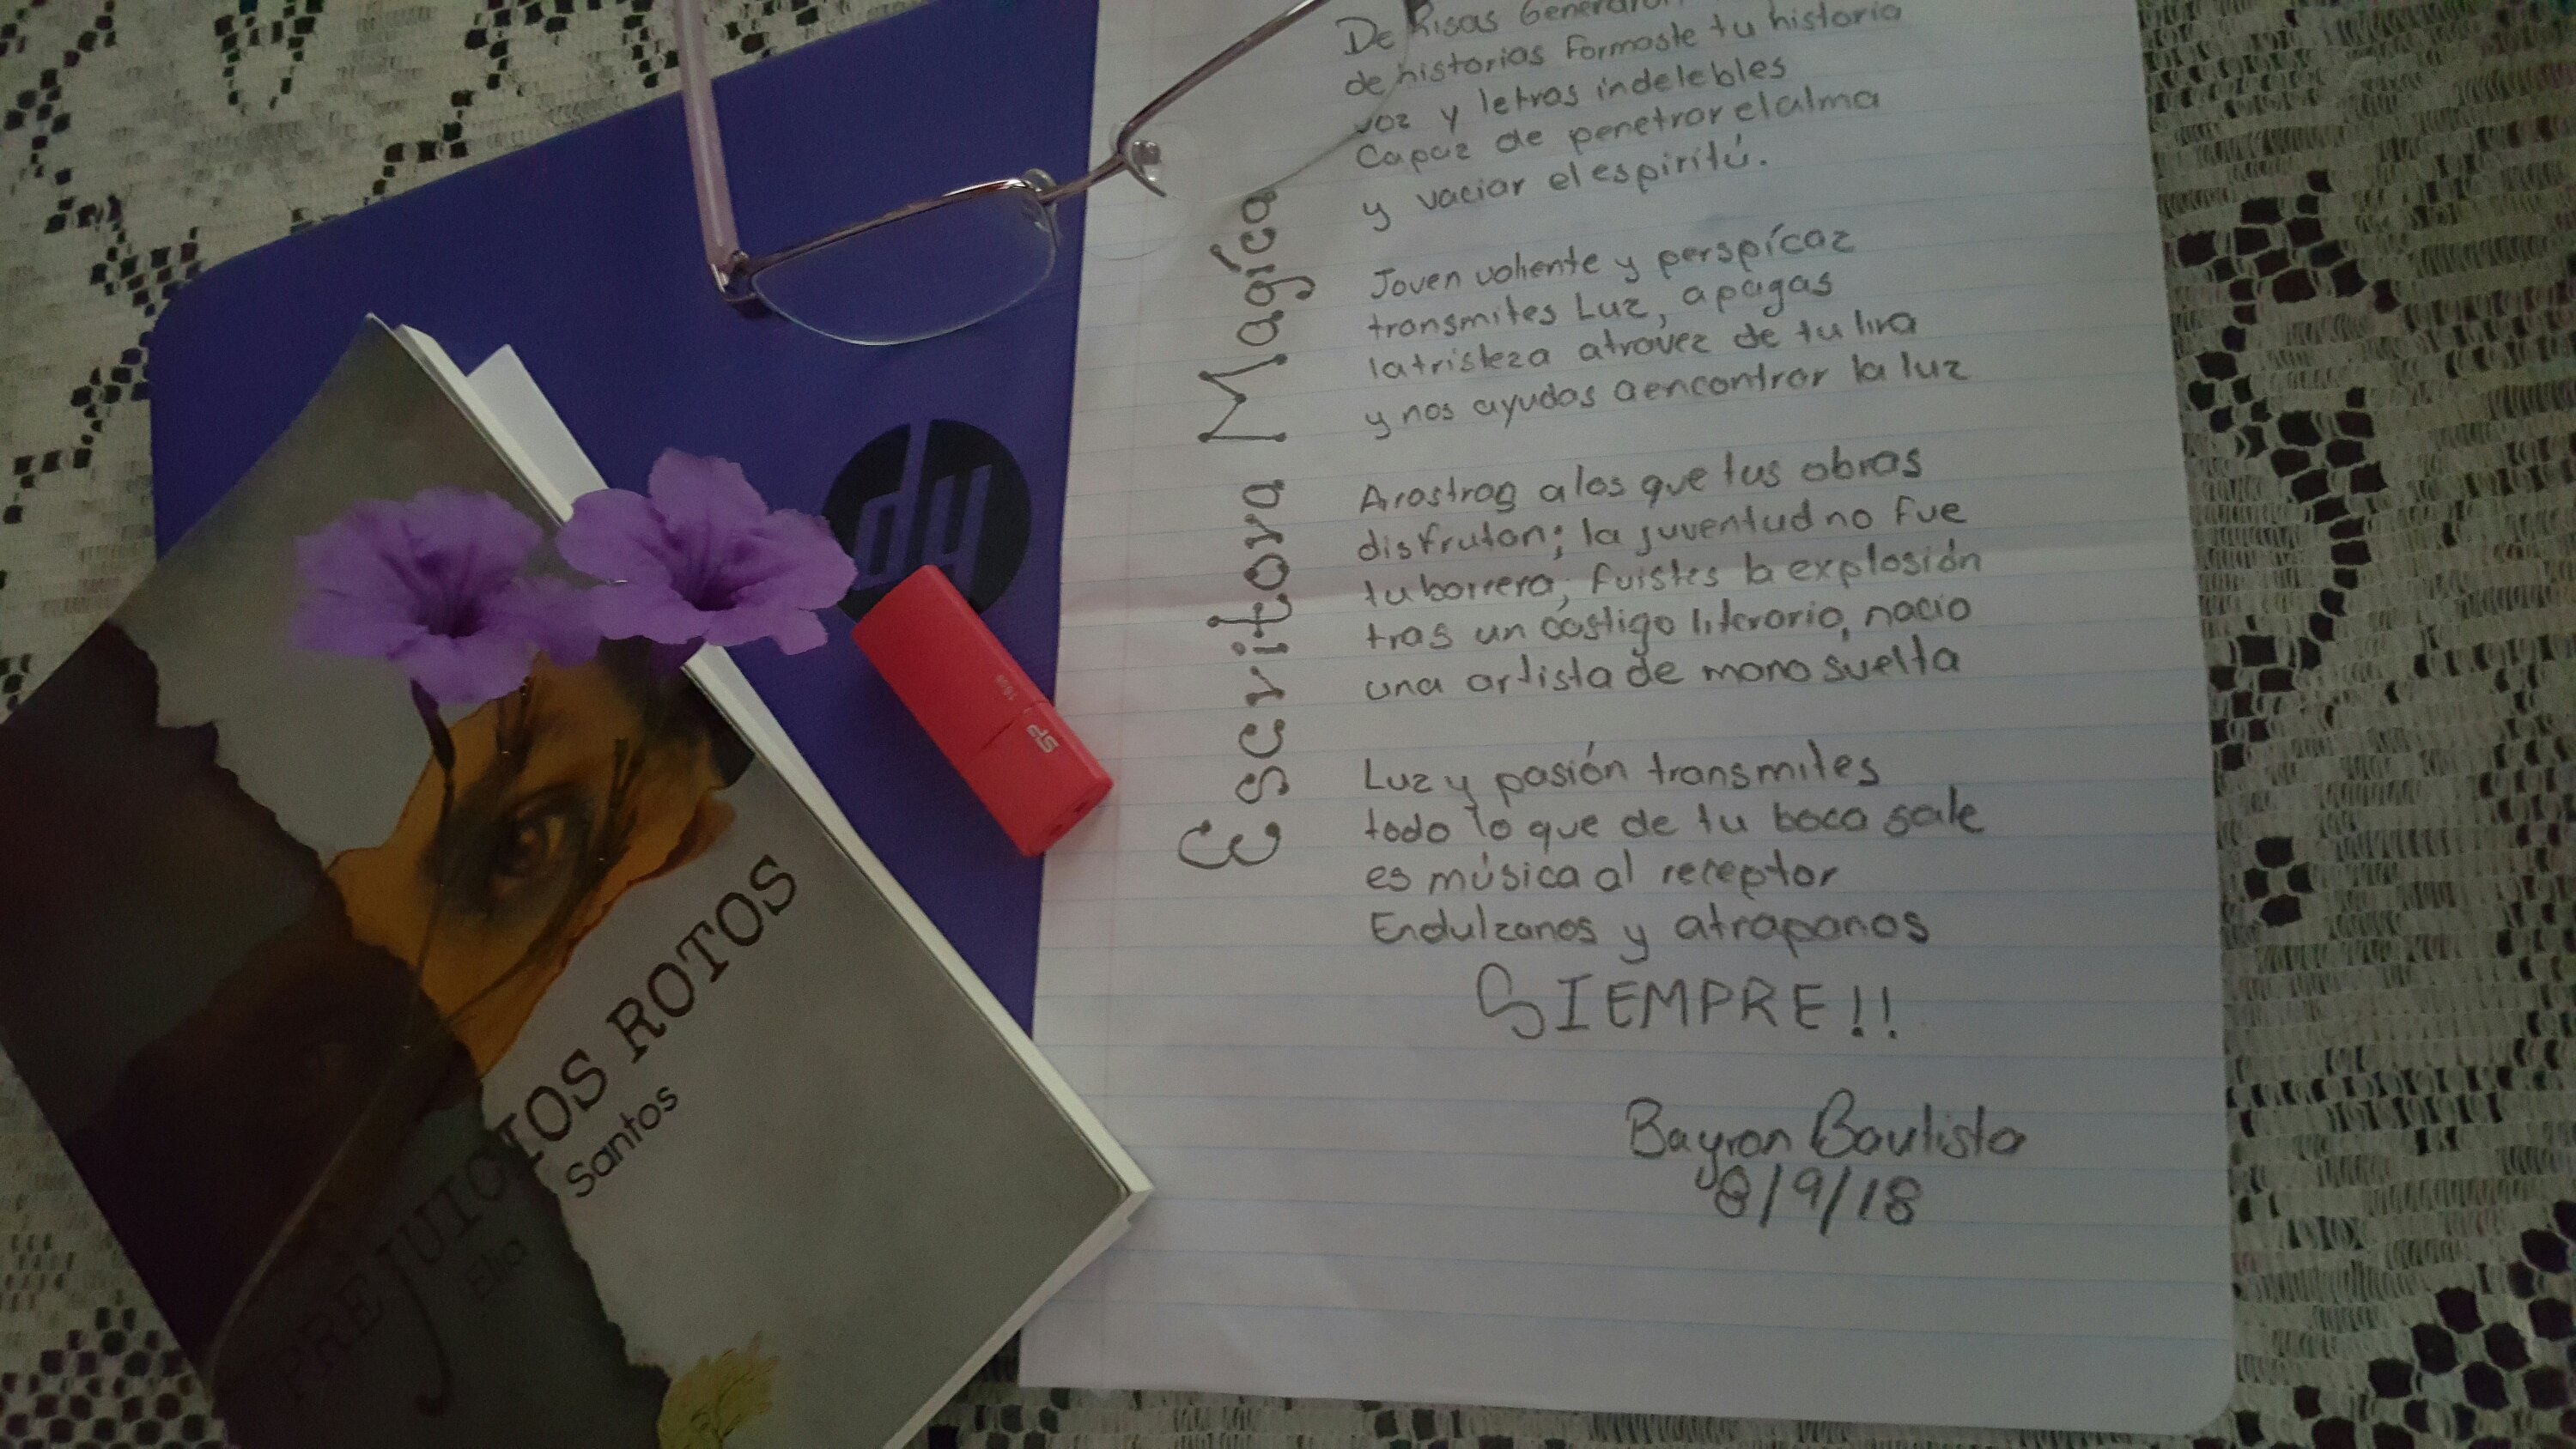 De Risas
de historias Formaste tu historia
voz y letras indelebles
Capaz de penetrar el alma
y vaciar el espiritú.
Joven valiente y perspícaz
transmites Luz, apagas
la tristeza atravez de tu lira
y nos ayudas a encontrar la luz
a los que tus obras
disfrutan; la juventud no fue
tu barrera; fuistes la explosión
tras un castigo literario, nacio
una artista de mano suelta
Luz y pasión transmites
todo lo que de tu boca sale
es música al receptor
Endulzanos y atrapanos
SIEMPRE!!
Bayron Bautista
8/9/18
Escritora Magíca
hp
SP
16GB
PREJUICIOS ROTOS
Elia Santos